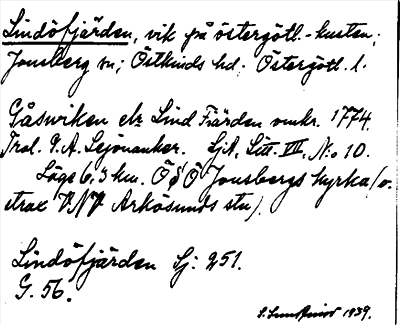 Lindöfjärden, vik på östergötl.-kusten;
Jonsberg sn; Östkinds hd. Östergötl. l.
Gåswiken elr Lind Fiärden omkr. 1774.
Tral. G. A. Lejonanker. SjK, Litt. III, N:o 10.
Läge 6,3 km. ÖSÖ Jonsbergs kyrka (o.
strax VNV Arkösunds stn).
Lindöfjärden Sj: 251.
G. 56.
1939.